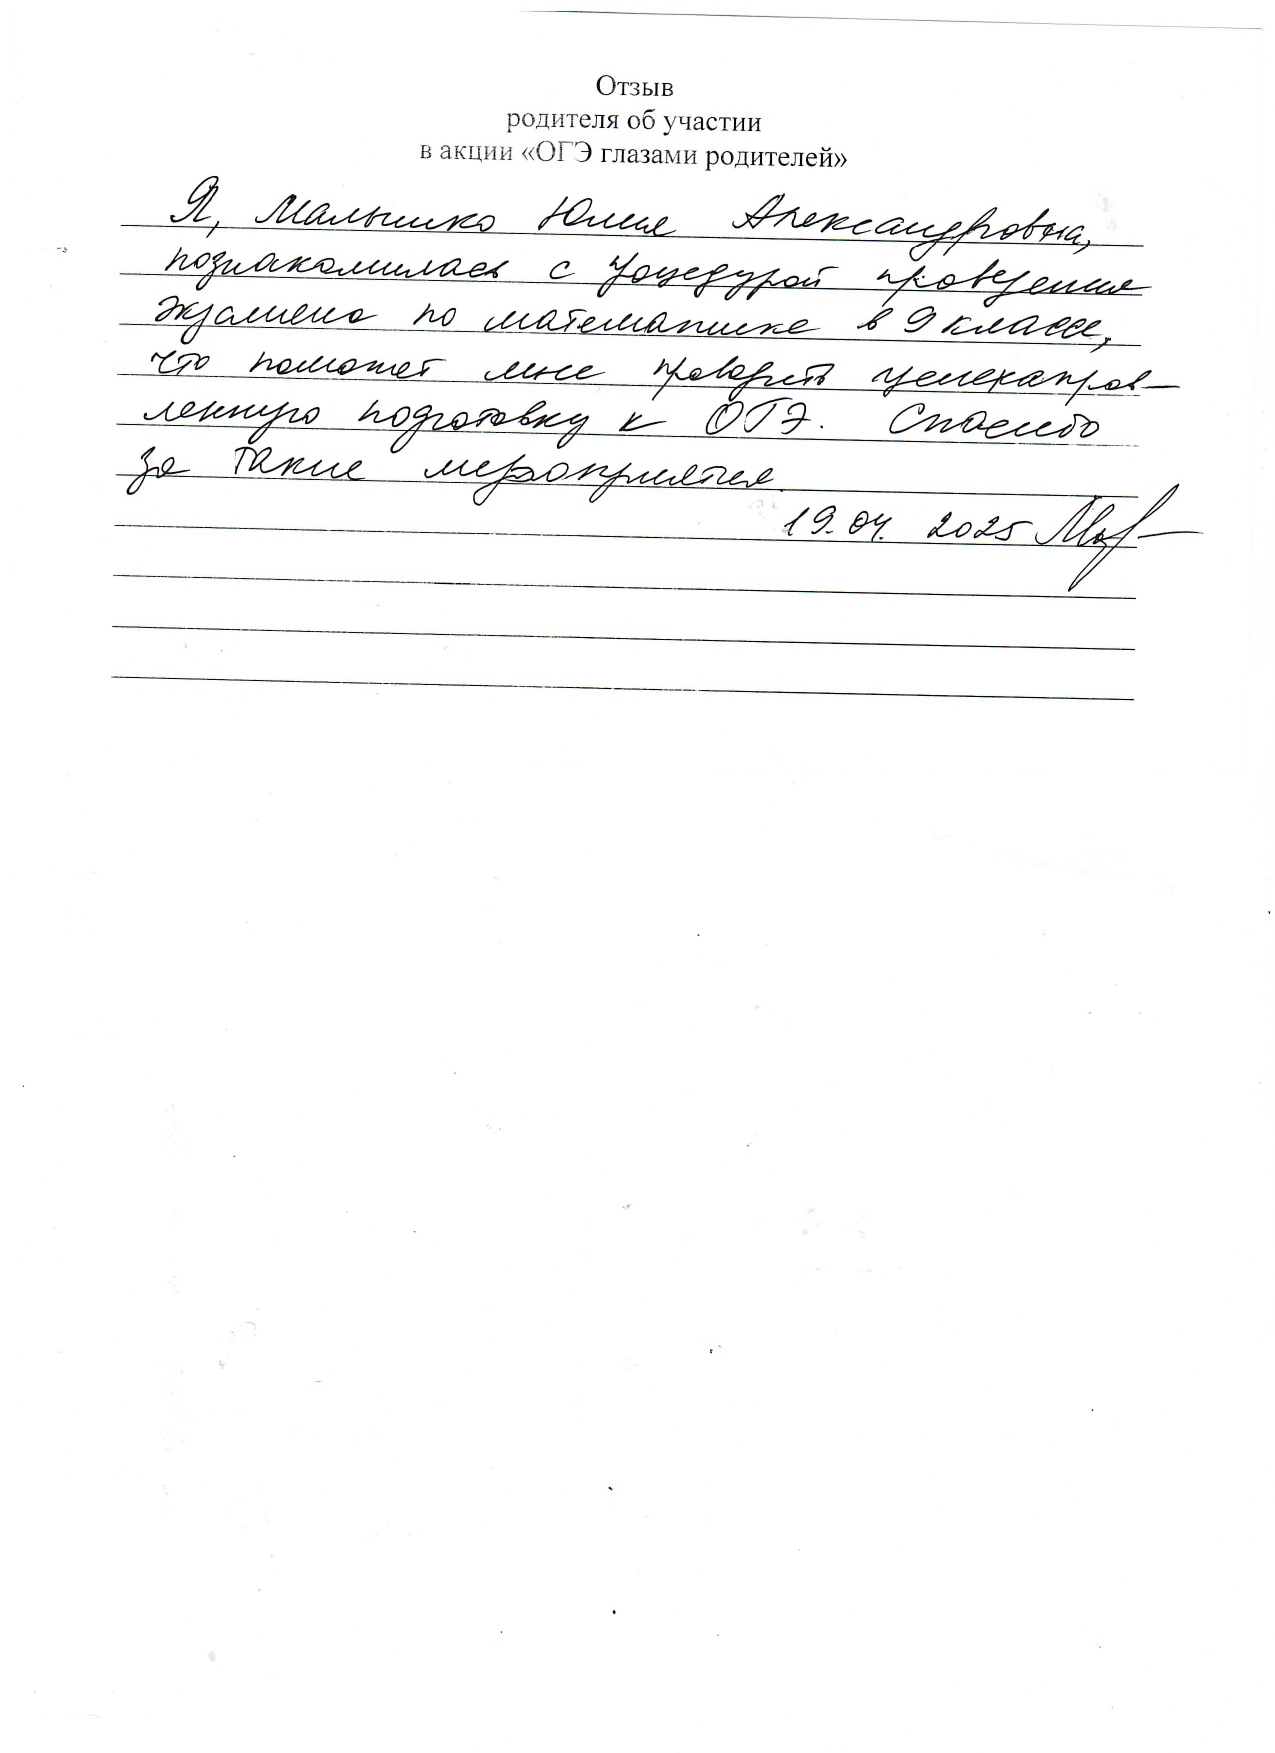 Отзыв
родителя об участии
в акции «ОГЭ глазами родителей»
Я, Малышко Юлия Александровна,
познакомилась с процедурой проведения
экзамена по математике в 9 классе,
что поможет мне проводить целенаправ-
ленную подготовку к ОГЭ. Спасибо
за такие мероприятия.
19.04. 2025